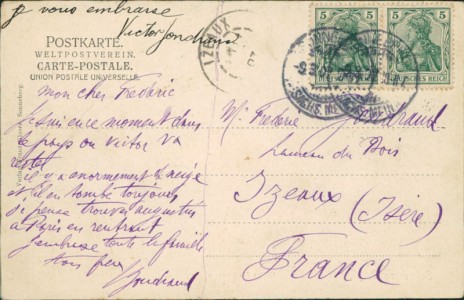 je vous embrasse
Victor Jondrand
POSTKARTE.
WELTPOSTVEREIN.
CARTE-POSTALE.
UNION POSTALE UNIVERSELLE.
IZEAUX
5 5
DEUTSCHES REICH
mon cher Frédéric
Je suis en ce moment dans
le pays ou Victor va
rester
il y a énormement de neige
et il en tombe toujours
je pense trouver augustin
a Paris en rentrant
J'embrasse toute la famille
ton frère
Jondrand
Mr Frédéric Jondrand
hameau du Bois
Izeaux (Isère)
France